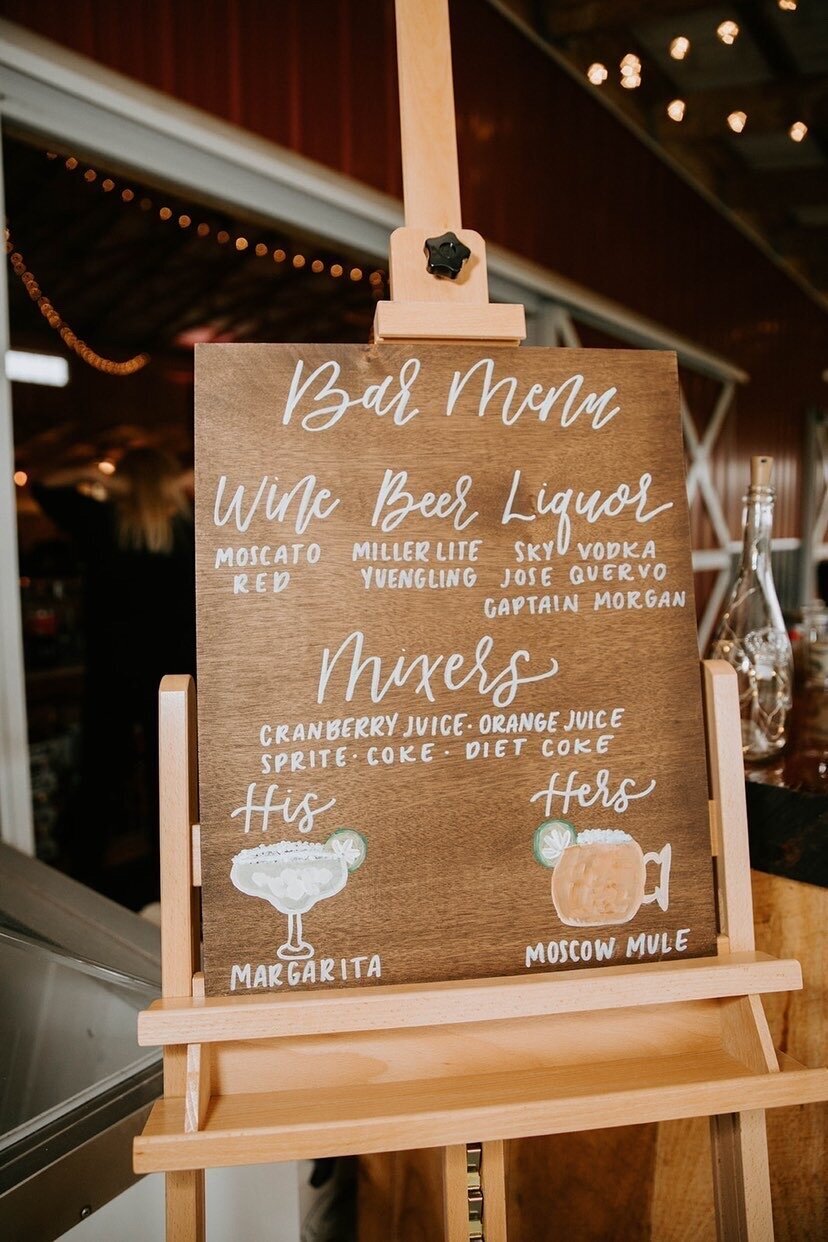 Bar Menu
Wine Beer Liquor
MOSCATO MILLER LITE SKY VODKA
RED YUENGLING JOSE QUERVO
CAPTAIN MORGAN
Mixers
CRANBERRY JUICE · ORANGE JUICE
SPRITE · COKE · DIET COKE
His Hers
MARGARITA MOSCOW MULE